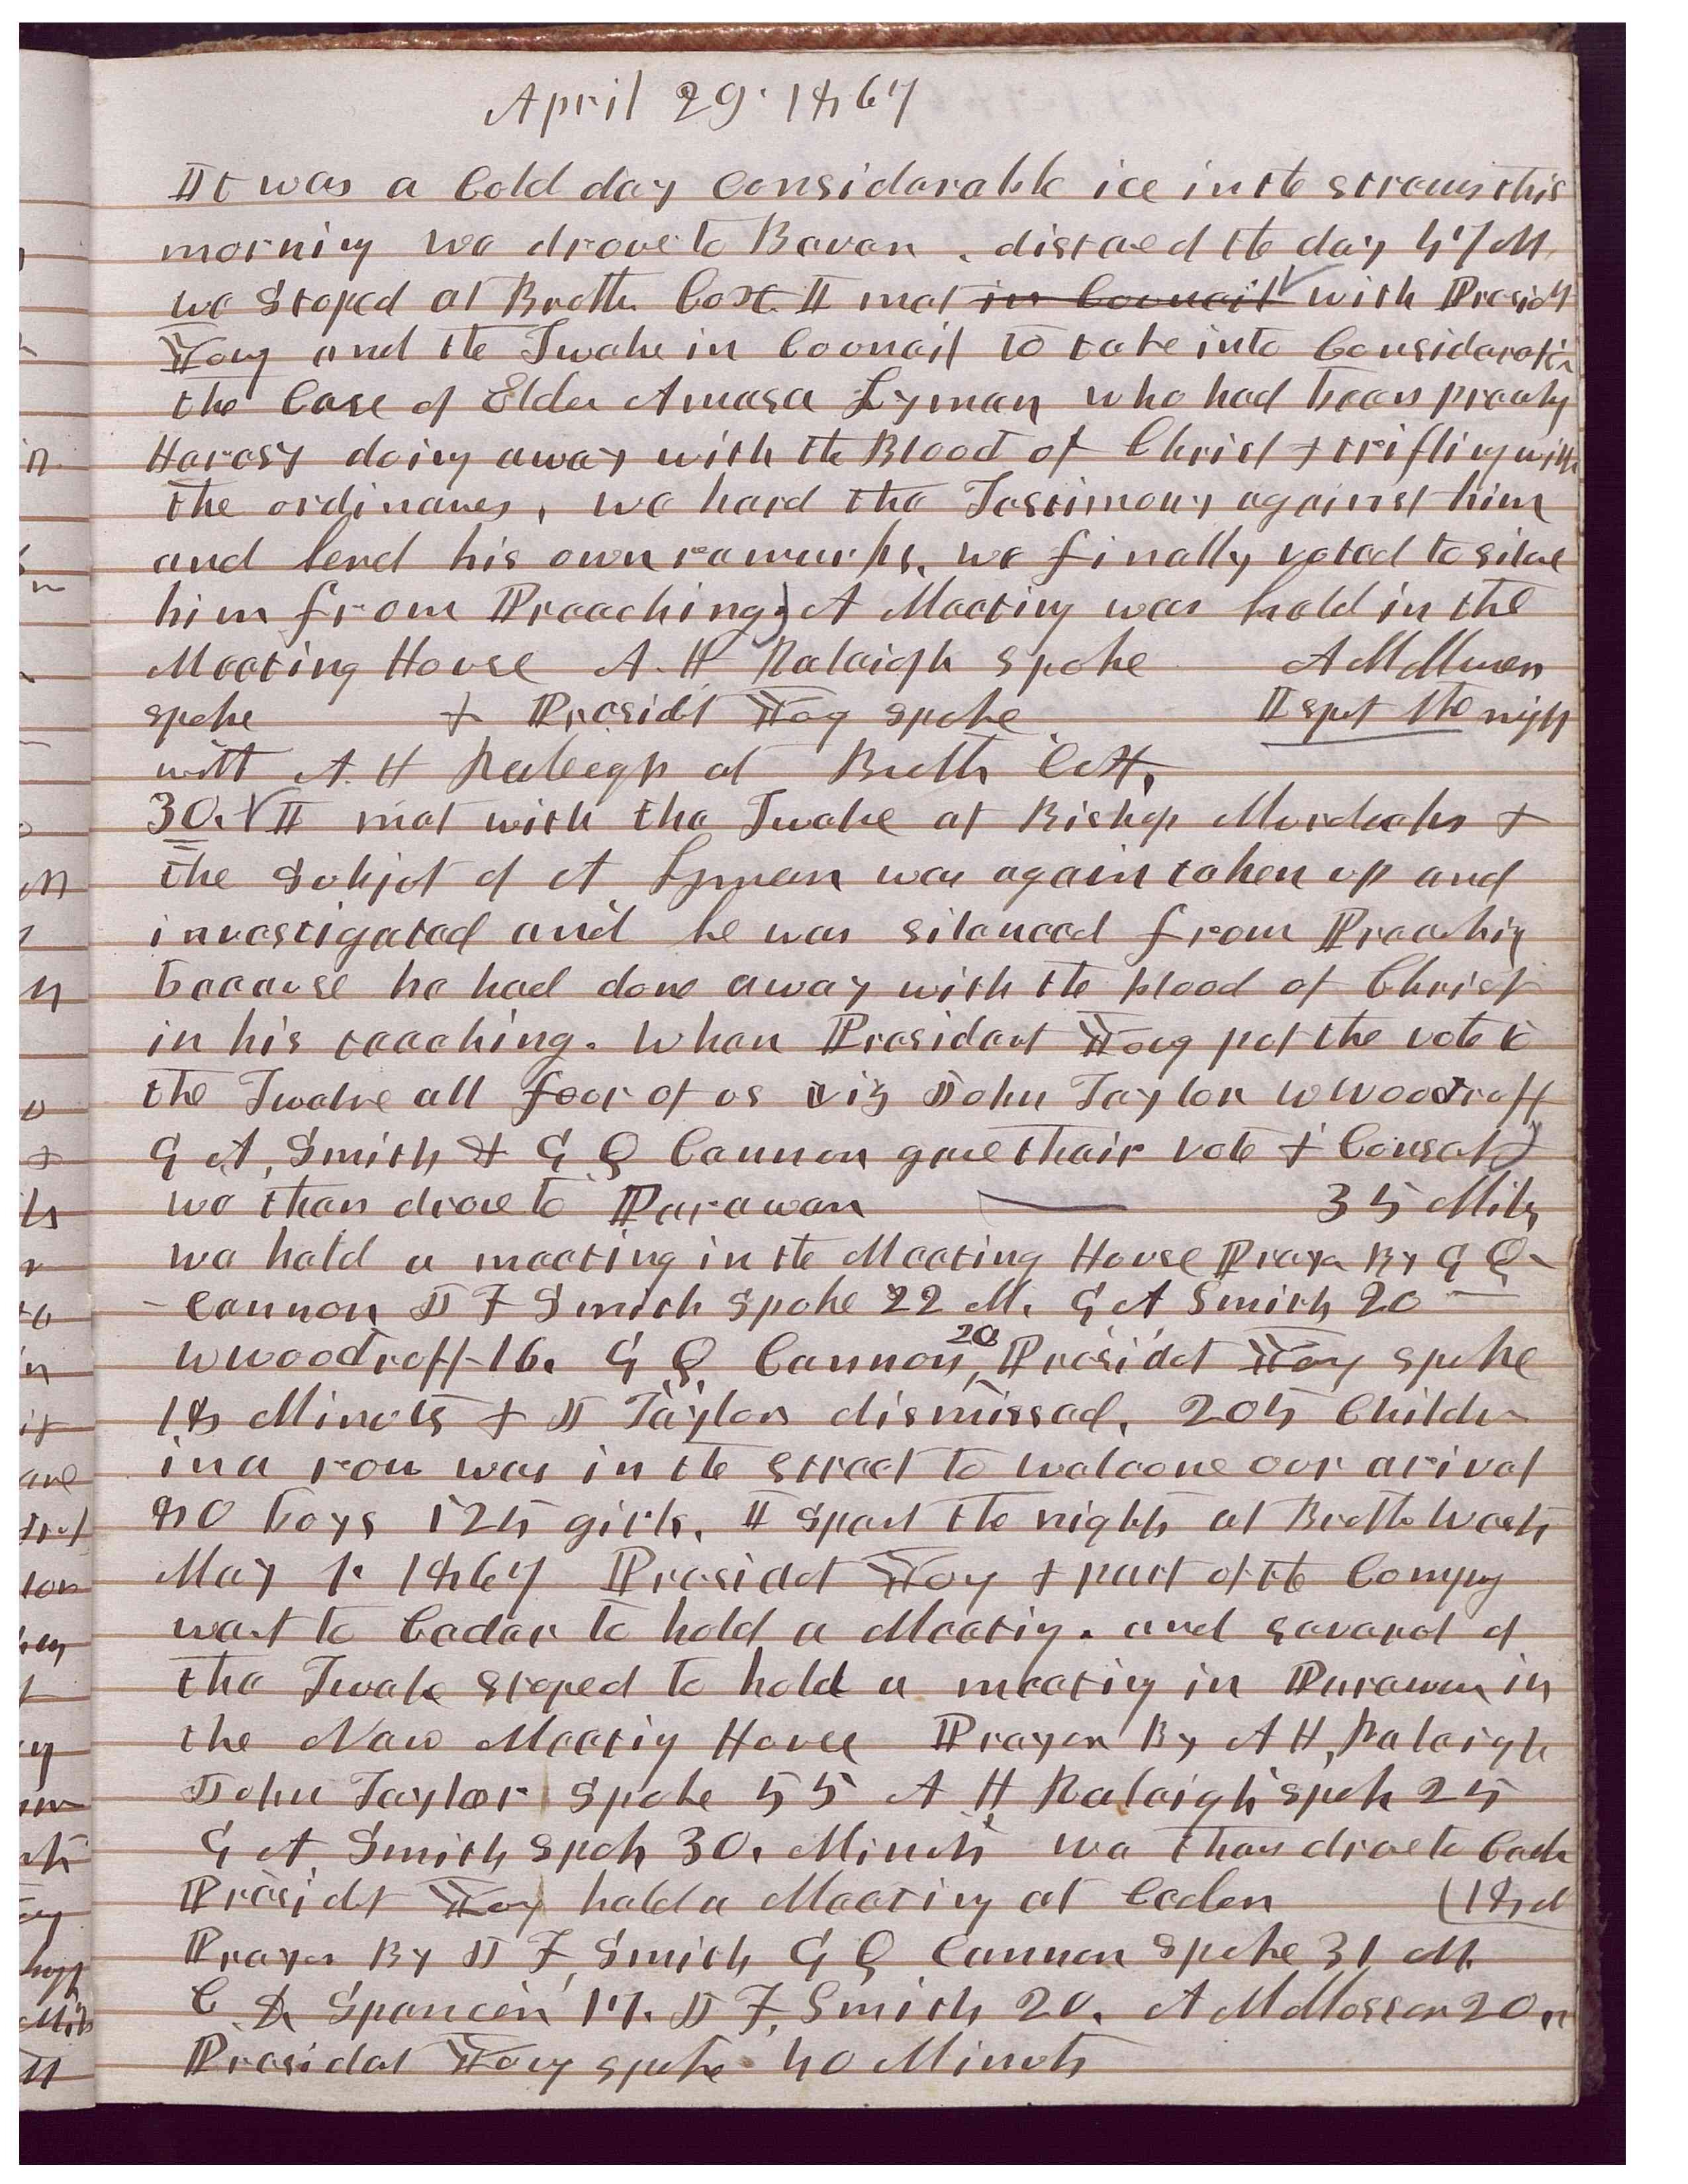 April 29. 1867
It was a Cold day Considerable ice in the streams this
morning we drove to Bever . distaned the day 47 M,
we Stoped at Brothe Cox. I met in Councail with Presidt
Young and the Twelve in Councail to take into Consideratin
the Case of Elder Amasa Lyman who had been preachg
Heresy doing away with the Blood of Christ & trifling with
the ordinances, we heard the Testimony against him
and herd his own remarks. we finally voted to silae
him from Preaching) A Meeting was held in the
Meeting House A. H Raleigh spoke A M Musen
spoke & Presidt Young spoke I spet the night
with A. H Raleigh at Broth Cox.
30. I met with the Twelve at Bishop Murdocks &
the Subjet of A Lyman was again taken up and
investigated and he was silenced from Preachig
because he had done away with the blood of Christ
in his teaching. When President Young put the vote to
the Twelve all four of us viz John Taylor W Woodruff
G A, Smith & G Q Cannon gave their vote & Consat)
we then drove to Parawan 35 Mils
we held a meeting in the Meeting House Prayer By G Q-
-Cannon J F Smith Spoke 22 M. G A Smith 20
W Woodruff 16. G Q Cannon, 20 Presidet Young spoke
18 Minuts & J Taylor dismissed. 205 Childn
in a row was in the street to welcome our arival
80 boys 125 girls. I Spent the night at Broth
May 1. 1867 Presidet Young & part of the Compny
went to Cedar to hold a Meetig. and several of
the Twelve stoped to hold a meetig in Parawan in
the New Meetig House Prayer By A H, Raleigh
John Taylor Spoke 55 A H Raleigh spok 25
G A Smith Spok 30. Minuts we then drove to Cedr
Presidt Young held a Meeting at Ceder (18 M
Prayer By J F, Smith G Q Cannon Spoke 31 M.
C R Spencer 17. J F, Smith 20. A M Musser 20,
Presidet Young spoke 40 Minuts